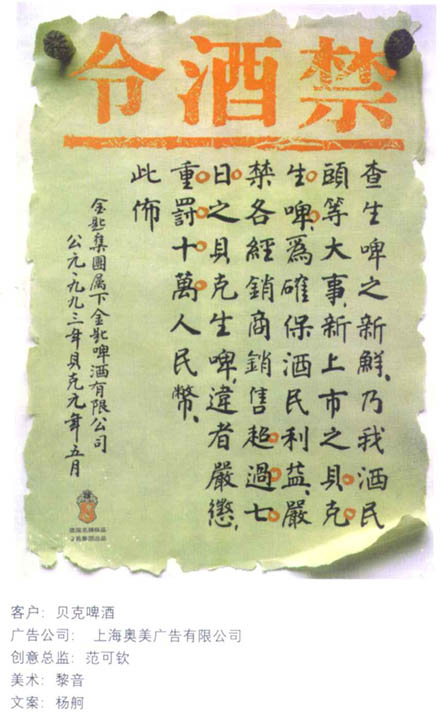 禁酒令
查生啤之新鮮、乃我酒民
頭等大事、新上市之貝克
生啤、爲確保酒民利益、嚴
禁各經銷商銷售超過七
日之貝克生啤、違者嚴懲、
重罰十萬人民幣、
此佈
金匙集團属下金匙啤酒有限公司
公元一九九三年貝克元年五月
客户：贝克啤酒
广告公司：上海奥美广告有限公司
创意总监：范可钦
美术：黎音
文案：杨舸